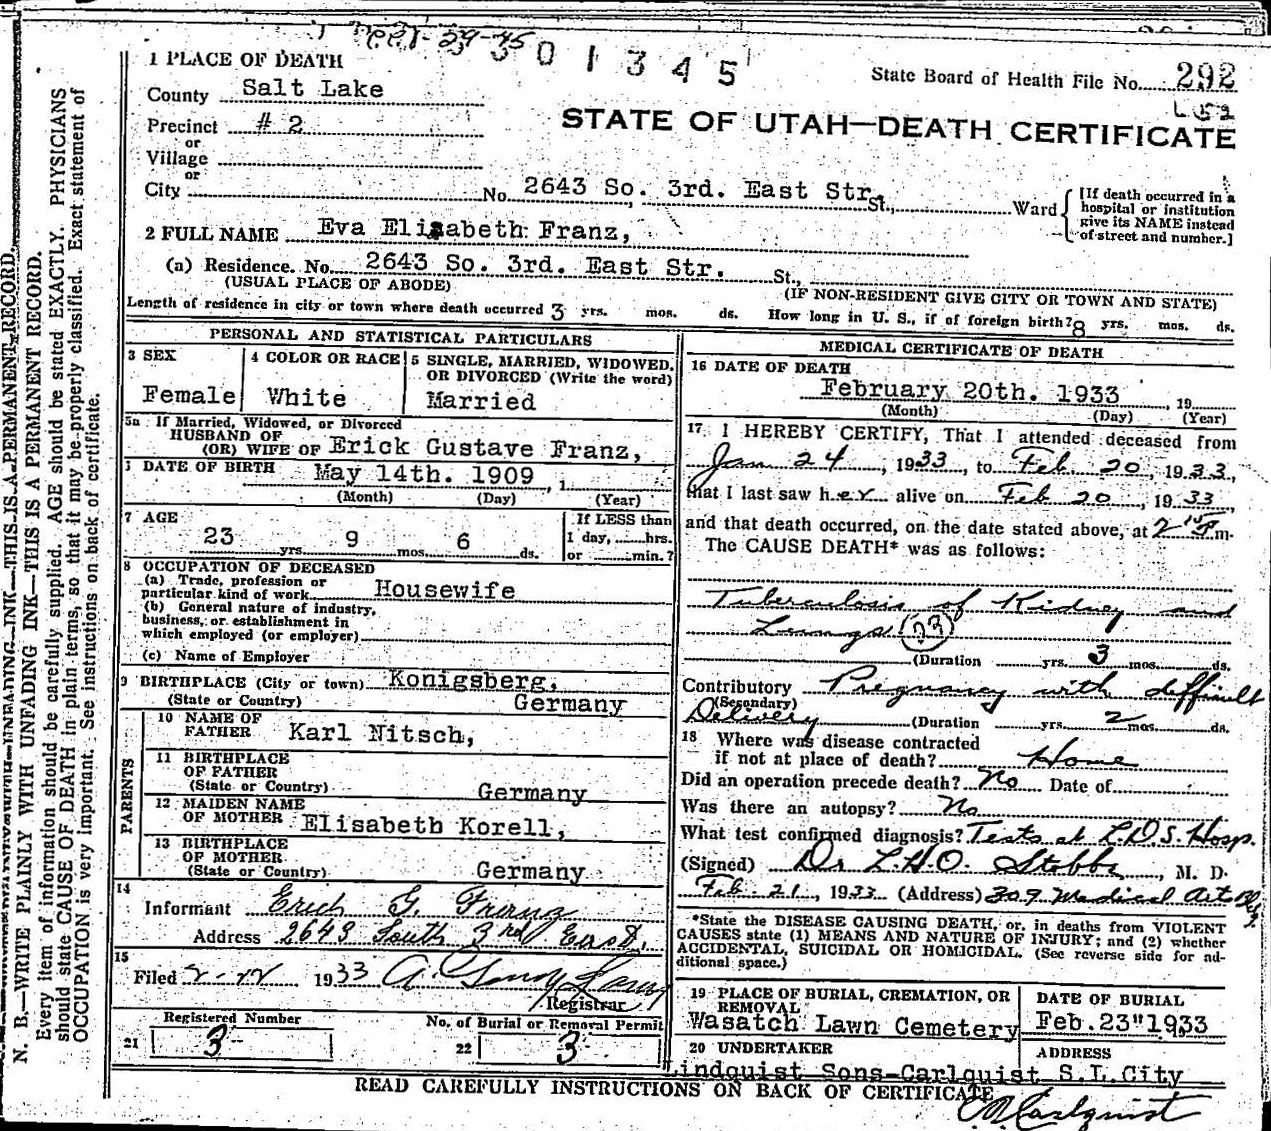 301345
1 PLACE OF DEATH
State Board of Health File No. 292
County Salt Lake
Precinct # 2
or
STATE OF UTAH—DEATH CERTIFICATE
Village
or
City No. 2643 So. 3rd. East Str. St., Ward
[If death occurred in a
hospital or institution
give its NAME instead
of street and number.]
2 FULL NAME Eva Elisabeth Franz,
(a) Residence. No. 2643 So. 3rd. East Str. St.,
(USUAL PLACE OF ABODE) (IF NON-RESIDENT GIVE CITY OR TOWN AND STATE)
Length of residence in city or town where death occurred 3 yrs. mos. ds. How long in U. S., if of foreign birth? 8 yrs. mos. ds.
PERSONAL AND STATISTICAL PARTICULARS
3 SEX
Female
4 COLOR OR RACE
White
5 SINGLE, MARRIED, WIDOWED,
OR DIVORCED (Write the word)
Married
5a If Married, Widowed, or Divorced
HUSBAND OF
(OR) WIFE OF Erick Gustave Franz,
DATE OF BIRTH May 14th. 1909 , 1
(Month) (Day) (Year)
7 AGE
23 yrs. 9 mos. 6 ds.
If LESS than
1 day, hrs.
or min.?
8 OCCUPATION OF DECEASED
(a) Trade, profession or
particular kind of work Housewife
(b) General nature of industry,
business, or establishment in
which employed (or employer)
(c) Name of Employer
9 BIRTHPLACE (City or town) Konigsberg,
(State or Country) Germany
PARENTS
10 NAME OF
FATHER Karl Nitsch,
11 BIRTHPLACE
OF FATHER
(State or Country) Germany
12 MAIDEN NAME
OF MOTHER Elisabeth Korell,
13 BIRTHPLACE
OF MOTHER
(State or Country) Germany
14
Informant Erich G. Franz
Address 2643 South 3rd East.
15
Filed 1933
Registrar
Registered Number
21 3
No. of Burial or Removal Permit
22 3
MEDICAL CERTIFICATE OF DEATH
16 DATE OF DEATH
February 20th. 1933 , 19
(Month) (Day) (Year)
17 I HEREBY CERTIFY, That I attended deceased from
Jan 24 , 1933 , to Feb 20 , 1933 ,
that I last saw her alive on Feb 20 , 1933 ,
and that death occurred, on the date stated above, at 2 15 P m.
The CAUSE DEATH* was as follows:
Tuberculosis of Kidney and
Lungs (23)
(Duration yrs. 3 mos. ds.
Contributory Pregnancy with difficult
(Secondary)
Delivery (Duration yrs. 2 mos. ds.
18 Where was disease contracted
if not at place of death? Home
Did an operation precede death? No Date of
Was there an autopsy? No
What test confirmed diagnosis? Tests at L.D.S. Hosp.
(Signed) Dr L.H.O. Stobbe , M. D.
Feb - 21 , 1933 (Address) 309 Medical Arts Bldg.
*State the DISEASE CAUSING DEATH, or, in deaths from VIOLENT
CAUSES state (1) MEANS AND NATURE OF INJURY; and (2) whether
ACCIDENTAL, SUICIDAL OR HOMICIDAL. (See reverse side for ad-
ditional space.)
19 PLACE OF BURIAL, CREMATION, OR
REMOVAL
Wasatch Lawn Cemetery
DATE OF BURIAL
Feb. 23" 1933
20 UNDERTAKER
Lindquist Sons-Carlquist
ADDRESS
S.L.City
READ CAREFULLY INSTRUCTIONS ON BACK OF CERTIFICATE
Carlquist
N. B.—WRITE PLAINLY WITH UNFADING INK—THIS IS A PERMANENT RECORD.
Every item of information should be carefully supplied. AGE should be stated EXACTLY. PHYSICIANS
should state CAUSE OF DEATH in plain terms, so that it may be properly classified. Exact statement of
OCCUPATION is very important. See instructions on back of certificate.